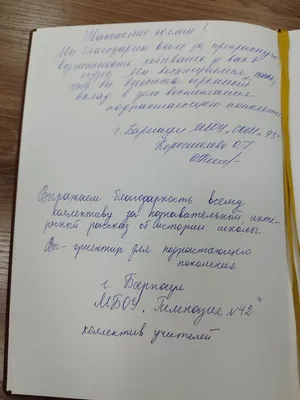 Уважаемые коллеги!
Мы благодарим вам за прекрасную
возможность побывать у вас в
Мы восхищаемся, тем,
что вы вносите огромный
вклад в дело воспитания
подрастающего поколения
г. Барнаул МБОУ "СОШ
Выражаем благодарность всему
коллективу за познавательный, инте-
ресный рассказ об истории школы.
Вы - ориентир для подрастающего
поколения
г. Барнаул
МБОУ "Гимназия №42"
коллектив учителей